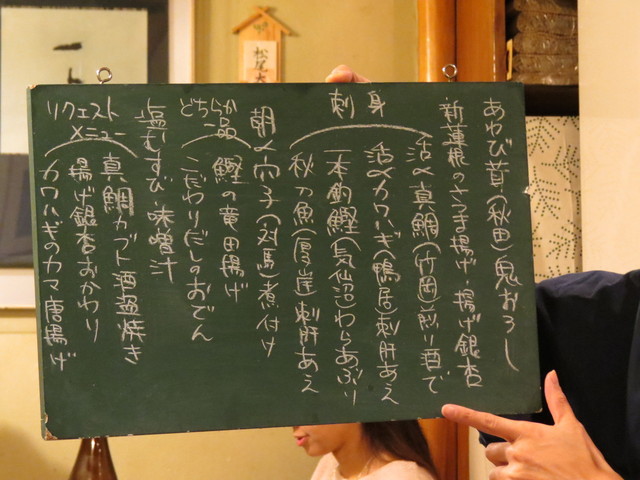 あわび茸(秋田)鬼おろし
新蓮根のさつま揚げ 揚げ銀杏
刺身
活〆真鯛(竹岡)煎り酒で
活〆カワハギ(鴨居)刺肝あえ
一本釣鰹(気仙沼)わらあぶり
秋刀魚(厚岸)刺肝あえ
朝〆穴子(対馬)煮付け
どちらか一品
鰹の竜田揚げ
こだわりだしのおでん
塩むすび 味噌汁
リクエストメニュー
真鯛カブト酒盗焼き
揚げ銀杏おかわり
カワハギのカマ唐揚げ
松尾大